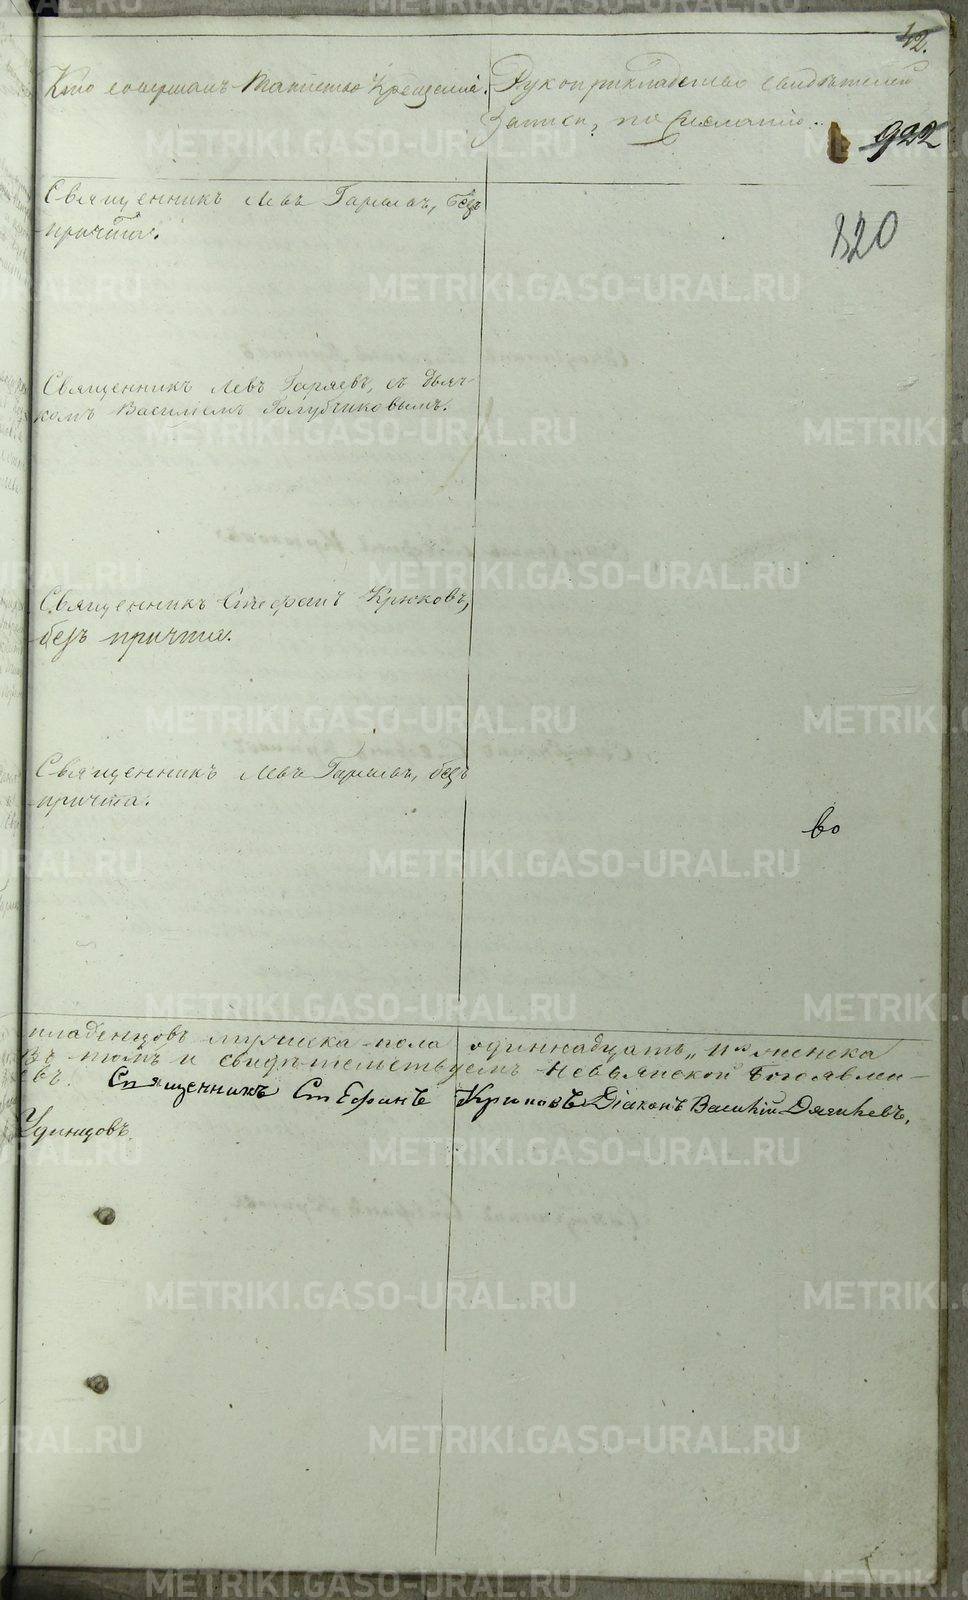 42.
Кто совершалъ таинство крещенія.
Рукоприкладство свидѣтелей
записи, по желанію.
922
320
Священникъ Левъ Гаряевъ, безъ
причта.
Священникъ Левъ Гаряевъ, съ дьяч-
комъ Василіемъ Голубчиковымъ.
Священникъ Стефанъ Крюковъ,
безъ причта.
Священникъ Левъ Гаряевъ, безъ
причта.
во
младенцовъ мужеска пола одиннадцать, и женска
въ томъ и свидѣтельствуемъ Невьянской Богоявлен-
Священникъ Стефанъ Крюковъ Діаконъ Василій Дягилевъ.
Удинцовъ.
METRIKI.GASO-URAL.RU